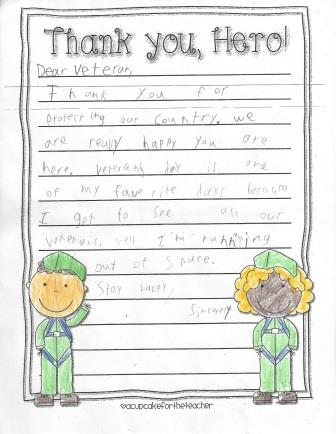 Thank you, Hero!
Dear Veteran,
Thank you for
protecting our country. we
are really happy you are
here. veterans day is one
of my faverite days because
I get to see all our
veterans. well I'm running
out of space.
Stay happy,
Sincerly
©acupcakefortheteacher